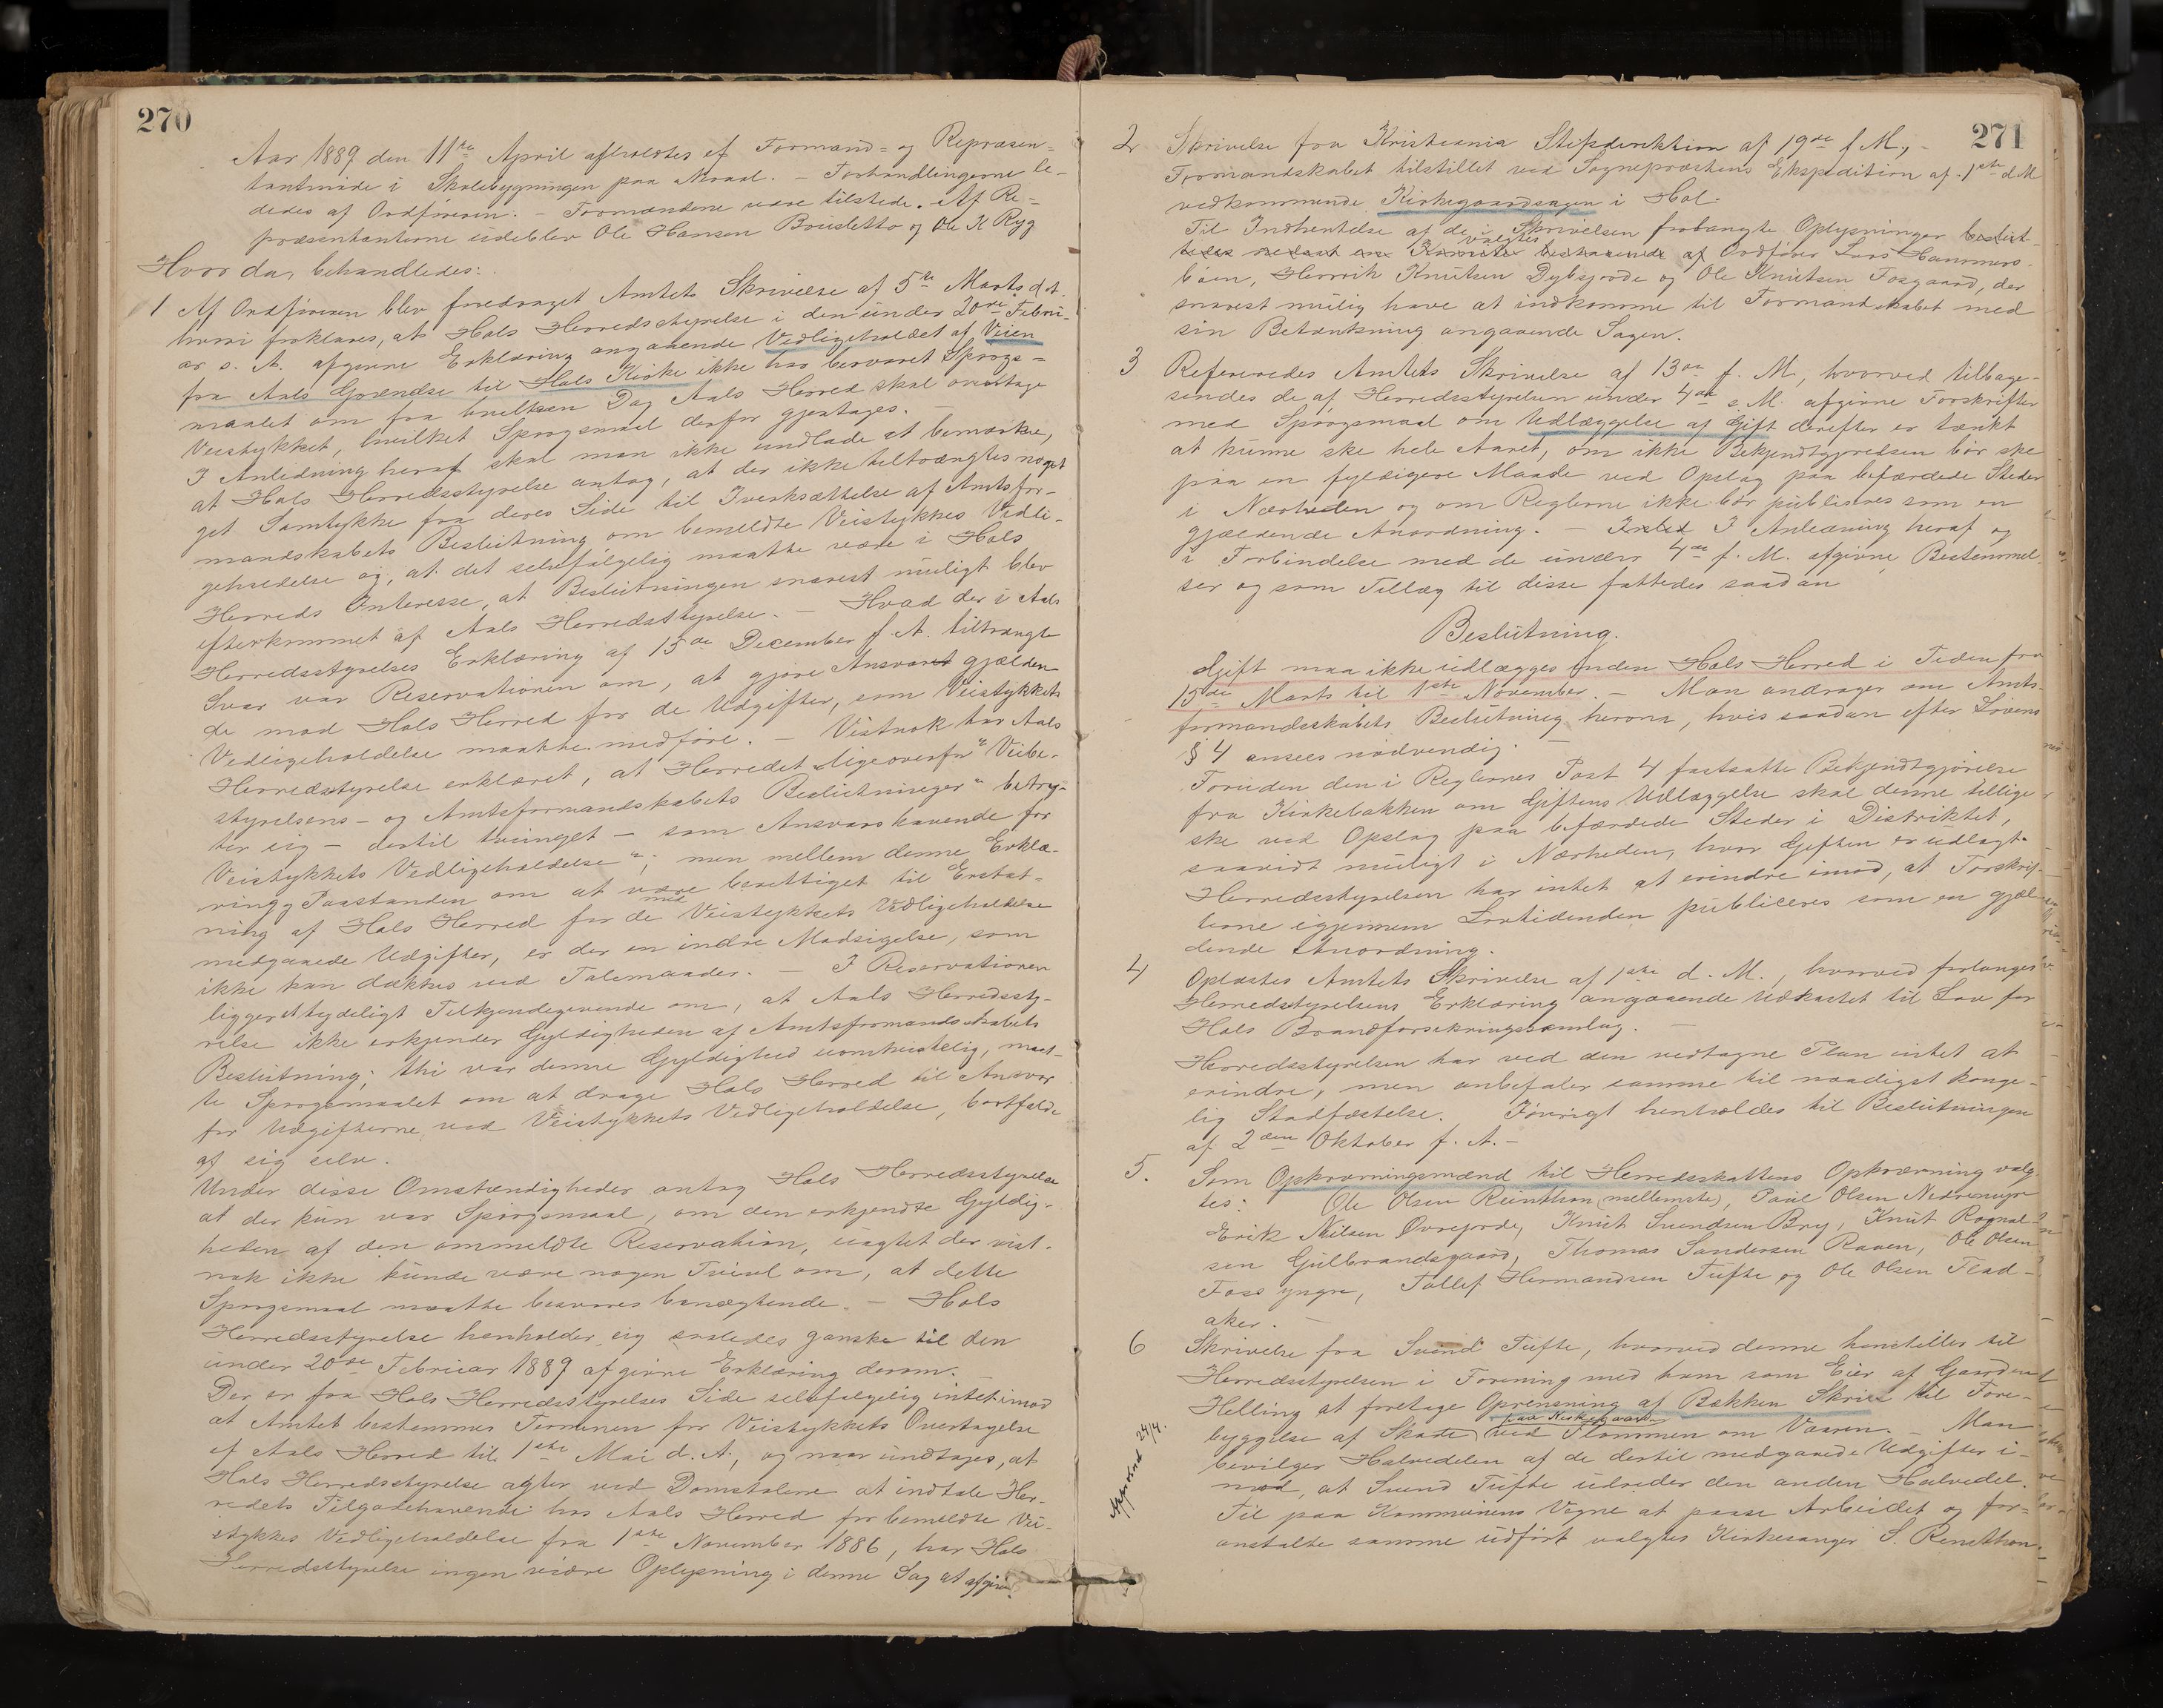 270
Aar 1889 den 11te April afholdtes et Formand- og Repræsen-
tantmøde i Skolebygningen paa Moaal. - Forhandlingerne le-
dedes af Ordføreren. - Formændene vare tilstede. - Af Re-
præsentanterne udeblev Ole Hansen Brusletto og Ole K Ryg
Hvor da behandledes:
1 Af Ordføreren blev foredraget Amtets Skrivelse af 5te Marts d.A.
hvori forklares, at Hols Herredsstyrelse i den under 20de Febru-
ar s. A. afgivne Erklæring angaaende Vedligeholdet af Veien
fra Aals Grændse til Hols Kirke ikke har besvaret Spørgs-
maalet om fra hvilken Dag Aals Herred skal overtage
Veistykket, hvilket Spørgsmaal derfor gjentages. -
I Anledning heraf skal man ikke undlade at bemærke,
at Hols Herredsstyrelse antog, at der ikke tiltrængtes noget
get Samtykke fra deres Side til Iverksættelse af Amtsfor-
mandskabets Beslutning om bemeldte Veistykkes Vedli-
geholdelse og, at det selvfølgelig maatte være i Hols
Herreds Interesse, at Beslutningen snarest muligt blev
efterkommet af Aals Herredsstyrelse. - Hvad der i Aals
Herredsstyrelses Erklæring af 15de December f. A. tiltrængte
Svar var Reservationen om, at gjøre Ansvaret gjælden-
de mod Hols Herred for de Udgifter, som Veistykkets
Vedligeholdelse maatte medføre. - Vistnok har Aals
Herredsstyrelse erklæret, at Herredet "ligeoverfor Veibe-
styrelsens- og Amtsformandskabets Beslutninger" betrag-
ter sig - dertil tvinget - som Ansvarshavende for
Veistykkets Vedligeholdelse"; men mellem denne Erklæ-
ring og Paastanden om at være berettiget til Erstat-
ning af Hols Herred for de med Veistykkets Vedligeholdelse
medgaaede Udgifter, er der en indre Modsigelse, som
ikke kan dækkes ved Talemaader. - I Reservationen
ligger et tydeligt Tilkjendegivende om, at Aals Herredssty-
relse ikke erkjender Gyldigheden af Amtsformandsskabets
Beslutning; thi var denne Gyldighed uomtvistelig, maat-
te Spørgsmaalet om at drage Hols Herred til Ansvar
for Udgifterne ved Veistykkets Vedligeholdelse, bortfalde
af sig selv.
Under disse Omstændigheder antog Hols Herredsstyrelse
at der kun var Spørgsmaal, om den erkjendte Gyldig-
heden af den ommeldte Reservation, uagtet der vist-
nok ikke kunde være nogen Tvivl om, at dette
Spørgsmaal maatte besvares benægtende. - Hols
Herredsstyrelse henholder sig saaledes ganske til den
under 20de Februar 1889 afgivne Erklæring derom.
Der er fra Hols Herredsstyrelses Side selvfølgelig intet imod
at Amtet bestemmer Terminen for Veistykkets Overtagelse
af Aals Herred til 1ste Mai d. A., og naar undtages, at
Hols Herredsstyrelse agter ved Domstolene at indtale Her-
redets Tilgodehavende hos Aals Herred for bemeldte Vei-
stykkes Vedligeholdelse fra 1ste November 1886, har Hols
Herredsstyrelse ingen videre Oplysning i denne Sag at afgive.
271
2 Skrivelse fra Kristiania Stiftsdirektion af 19de f. M.,
Formandskabet tilstillet ved Sogneprestens Ekspedition af 1ste d. M
vedkommende Kirkegaardsagen i Hol.
Til Indhentelse af de i Skrivelsen forlangte Oplysninger beslut-
tedes nedsat en Komite bestaaende valgtes af Ordfører Lars Hammers-
bøen, Henrik Knutsen Dybsjorde og Ole Knutsen Fosgaard, der
snarest mulig have at indkomme til Formandskabet med
sin Betænkning angaaende Sagen.
3 Refereredes Amtets Skrivelse af 13de f. M., hvorved tilbage-
sendes de af Herredsstyrelsen under 4de s. M. afgivne Forskrifter
med Spørgsmaal om Udlæggelse af Gift derefter er tænkt
at kunne ske hele Aaret, om ikke Bekjendtgjørelsen bør ske
paa en fyldigere Maade ved Opslag paa befærdede Steder
i Nærheden og om Reglerne ikke bør publiceres som en
gjældende Anordning. - I Anledning heraf og
i Forbindelse med de under 4de f. M. afgivne Bestemmel-
ser og som Tillæg til disse fattedes saadan
Beslutning.
Gift maa ikke udlægges inden Hols Herred i Tiden fra
15de Marts til 1ste November. - Man andrager om Amts-
formandsskabets Beslutning herom, hvis saadan efter Lovens
§ 4 ansees nødvendig. -
Foruden den i Reglernes Post 4 fastsatte Bekjendtgjørelse
fra Kirkebakken om Giftens Udlæggelse skal denne tillige
ske ved Opslag paa befærdede Steder i Distriktet,
saavidt muligt i Nærheden, hvor Giften er udlagt.
Herredsstyrelsen har intet at erindre imod, at Forskrif-
terne igjennem Lovtidenden publiceres som en gjæl-
dende Anordning.
4 Oplæstes Amtets Skrivelse af 1ste d. M., hvorved forlanges
Herredsstyrelsens Erklæring angaaende Udkastet til Lov for
Hols Brandforsikringssamlag. -
Herredsstyrelsen har ved den vedtagne Plan intet at
erindre, men anbefaler samme til naadigst konge-
lig Stadfæstelse. Forøvrigt henholdes til Beslutningen
af 2den Oktober f. A. -
5. Som Opkrævningsmænd til Herredsskattens Opkrævning valg-
tes: Ole Olsen Reinthon (mellemste), Paul Olsen Nedrenyre
Erik Nilsen Øvrejorde, Knut Svendsen Bry, Knut Rognal-
sen Gulbrandsgaard, Thomas Sandersen Raaen, Ole Olsen
Foss yngre, Tollef Hermandsen Tufte og Ole Olsen Flad-
aker. -
6 Skrivelse fra Svend Tufte, hvorved denne henstiller til
Herredsstyrelsen i Forening med ham som Eier af Gaarden
Helling at foretage Oprensning af Bækken Skrin til Fore-
byggelse af Skade paa Kirkegaarden ved Flommen om Vaaren. - Man
bevilger Halvedelen af de dertil medgaaede Udgifter i-
mod, at Svend Tufte udreder den anden Halvedel.
Til paa Kommunens Vegne at paase Arbeidet og for-
anstalte samme udført valgtes Kirkesanger S. Reinthon.
24/4.